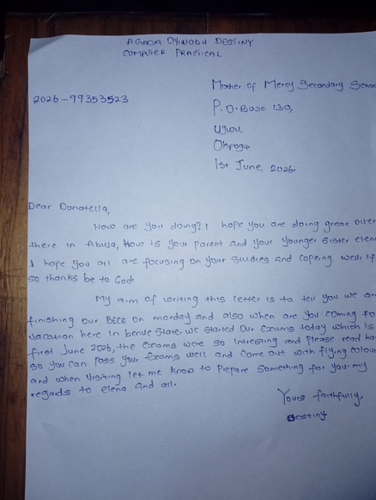 AGADA CHINODU DESTINY
COMPUTER PRACTICAL
Mother of Mercy Secondary
2026-99353523
P.O. Box 130,
Ugwu,
Okpoga
1st June, 2026.
Dear Donatella,
How are you doing? I hope you are doing great over
there in Abuja, How is your parent and your younger sister elena
I hope you all are focusing on your studies and copeing well, if
so thanks be to God.
My aim of writing this letter is to tell you we are
finishing our BECE on monday and also when are you coming for
vacation here in benue state. we started our exams today which is
first June 2026, the exams were so intresting and please read
so you can pass your exams well and come out with flying colour
and when visiting let me know to prepare something for you my
regards to elena and all.
Yours faithfully,
Destiny